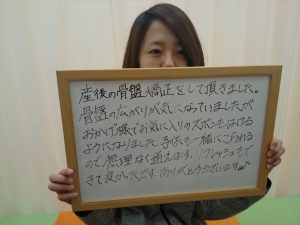 産後の骨盤矯正をして頂きました。
骨盤の広がりが気になっていましたが
おかげ様でお気に入りのズボンもはける
ようになりました。子供も一緒にこられる
ので、無理なく通えます。リフレッシュもで
きて良かったです。ありがとうございます。